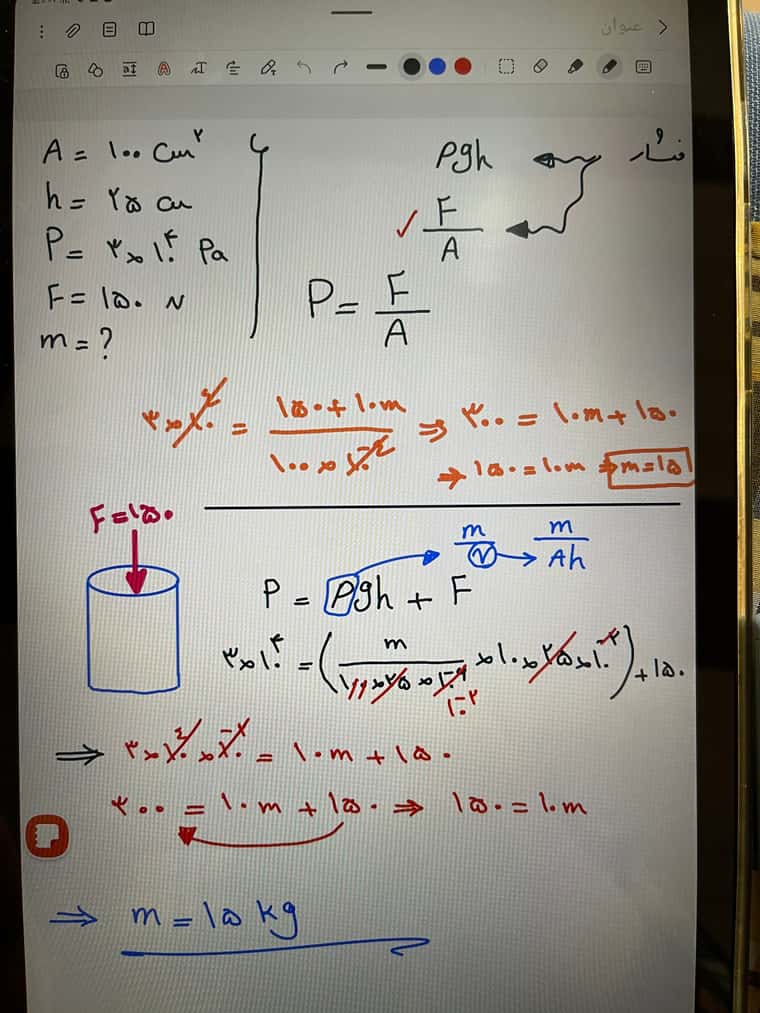 عنوان
A = ۱۰۰ cm²
h = ۲۵ cm
P = ۳×۱۰⁴ Pa
F = ۱۵۰ N
m = ?
فشار
ρgh
✓ F/A
P = F/A
۳×۱۰⁴ = (۱۵۰+۱۰m)/(۱۰۰×۱۰⁻⁴) ⇒ ۳۰۰ = ۱۰m+۱۵۰
⇒ ۱۵۰=۱۰m ⇒ m=۱۵
F=۱۵۰
m/V → m/Ah
P = ρgh + F
۳×۱۰⁴ = (m/(۱۰۰×۲۵×۱۰⁻⁶) ×۱۰×۲۵×۱۰⁻²) + ۱۵۰
۱۰⁻²
⇒ ۳×۱۰⁴×۱۰⁻² = ۱۰m + ۱۵۰
۳۰۰ = ۱۰m + ۱۵۰ ⇒ ۱۵۰ = ۱۰m
⇒ m = ۱۵ kg